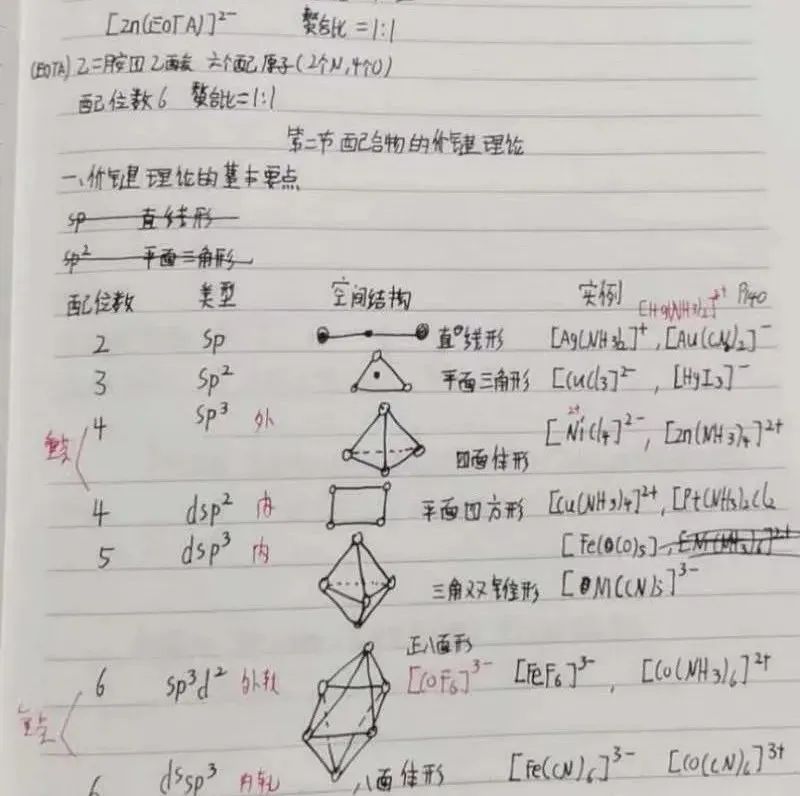 [Zn(EDTA)]²⁻ 螯合比=1:1
(EDTA) 乙二胺四乙酸 六个配原子(2个N,4个O)
配位数6 螯合比=1:1
第二节 配合物的价键理论
一、价键理论的基本要点
sp 直线形
sp² 平面三角形
配位数 类型 空间结构 实例 [Hg(NH3)2]²⁺ P140
2 sp 直线形 [Ag(NH3)2]⁺, [Au(CN)2]⁻
3 sp² 平面三角形 [CuCl3]²⁻, [HgI3]⁻
重点 4 sp³ 外 四面体形 [NiCl4]²⁻, [Zn(NH3)4]²⁺
2+
4 dsp² 内 平面四方形 [Cu(NH3)4]²⁺, [Pt(NH3)2Cl2
5 dsp³ 内 [Fe(CO)5],
三角双锥形 (CN)5]³⁻
正八面形
重点 6 sp³d² 外轨 [CoF6]³⁻ [FeF6]³⁻, [Co(NH3)6]²⁺
6 d sp³ 内轨 八面体形 [Fe(CN)6]³⁻ [Co(CN)6]³⁺